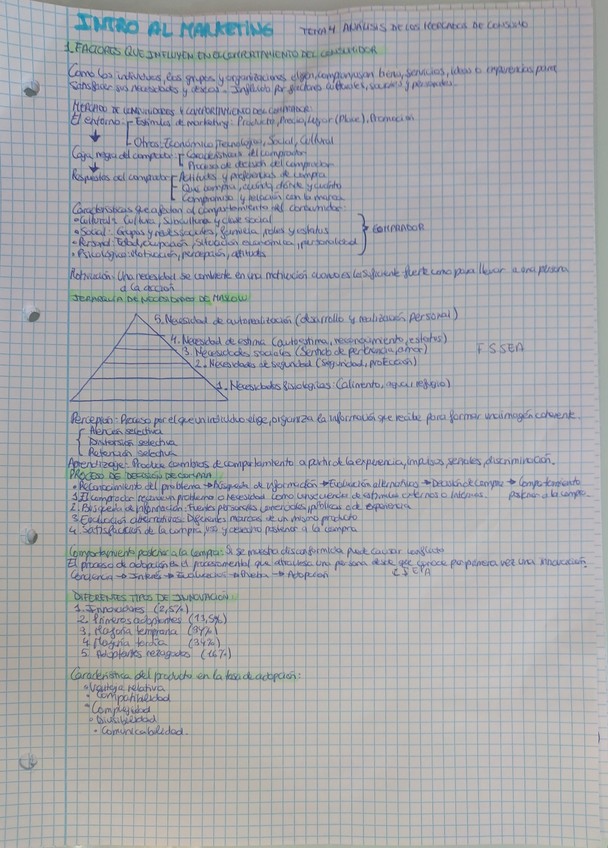 INTRO AL MARKETING TEMA 4 ANÁLISIS DE LOS MERCADOS DE CONSUMO
1. FACTORES QUE INFLUYEN EN EL COMPORTAMIENTO DEL CONSUMIDOR
Como los individuos, los grupos y organizaciones eligen, compran, usan bienes, servicios, ideas o experiencias para
satisfacer sus necesidades y deseos. Influido por factores culturales, sociales y personales.
MERCADO DE CONSUMIDORES Y COMPORTAMIENTO DEL COMPRADOR:
El entorno: Estímulos de marketing: Producto, Precio, Lugar (Place), Promoción
Otros: Económico, Tecnológico, Social, Cultural
Caja negra del comprador: Características del comprador
Proceso de decisión del comprador
Respuestas del comprador Actitudes y preferencias de compra
Que compra, cuándo, dónde y cuánto
Compromiso y relación con la marca
Características que afectan al comportamiento del consumidor:
• Cultural: Cultura, Subcultura y clase social
• Social: Grupos y redes sociales, familia, roles y estatus
• Personal: Edad, ocupación, Situación económica, personalidad
COMPRADOR
• Psicológico: Motivación, percepción, actitudes
Motivación: Una necesidad se convierte en una motivación cuando es lo suficiente fuerte como para llevar a una persona
a la acción
JERARQUÍA DE NECESIDADES DE MASLOW
5. Necesidad de automalización (desarrollo y realización personal)
4. Necesidad de estima (autoestima, reconocimiento, estatus)
3. Necesidades sociales (Sentido de pertenencia, amor)
FSSEA
2. Necesidades de seguridad (Seguridad, protección)
1. Necesidades fisiológicas (alimento, agua, refugio)
Percepción: Proceso por el que un individuo elige, organiza la información que recibe para formar una imagen coherente.
Atención selectiva
Distorsión selectiva
Retención selectiva
Aprendizaje: Produce cambios de comportamiento a partir de la experiencia, impulsos, señales, discriminación.
PROCESO DE DECISIÓN DE COMPRA
• Reconocimiento del problema → Búsqueda de información → Evaluación alternativas → Decisión de compra → Comportamiento
posterior a la compra.
1. El comprador reconoce un problema o Necesidad como consecuencia de estímulos externos o internos.
2. Búsqueda de información: Fuentes personales, comerciales, públicas o de experiencia
3. Evaluación alternativas: Diferentes marcas de un mismo producto
4. Satisfacción de la compra, uso y desecho posterior a la compra
Comportamiento posterior a la compra: Si se muestra disconformidad puede causar
El proceso de adopción es el proceso mental que atraviesa una persona desde que conoce por primera vez una innovación.
Conciencia → Interés → Evaluación → Prueba → Adopción
CIEPA
DIFERENTES TIPOS DE INNOVACIÓN
1. Innovadores (2,5%)
2. Primeros adoptantes (13,5%)
3. Mayoría temprana (34%)
4. Mayoría tardía (34%)
5. Adoptantes rezagados (16%)
Característica del producto en la tasa de adopción:
• Ventaja relativa
• Compatibilidad
• Complejidad
• Divisibilidad
• Comunicabilidad.